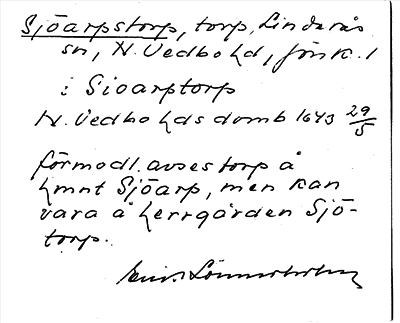 Sjöarpstorp, torp, Linderås
sn, N. Vedbo hd, förk. 1
i Sioarptorp
N. Vedbo hds domb 1643 29/5
förmodl. avses torp å
hmnt Sjöarp, men kan
vara å herrgården Sjö-
torp.